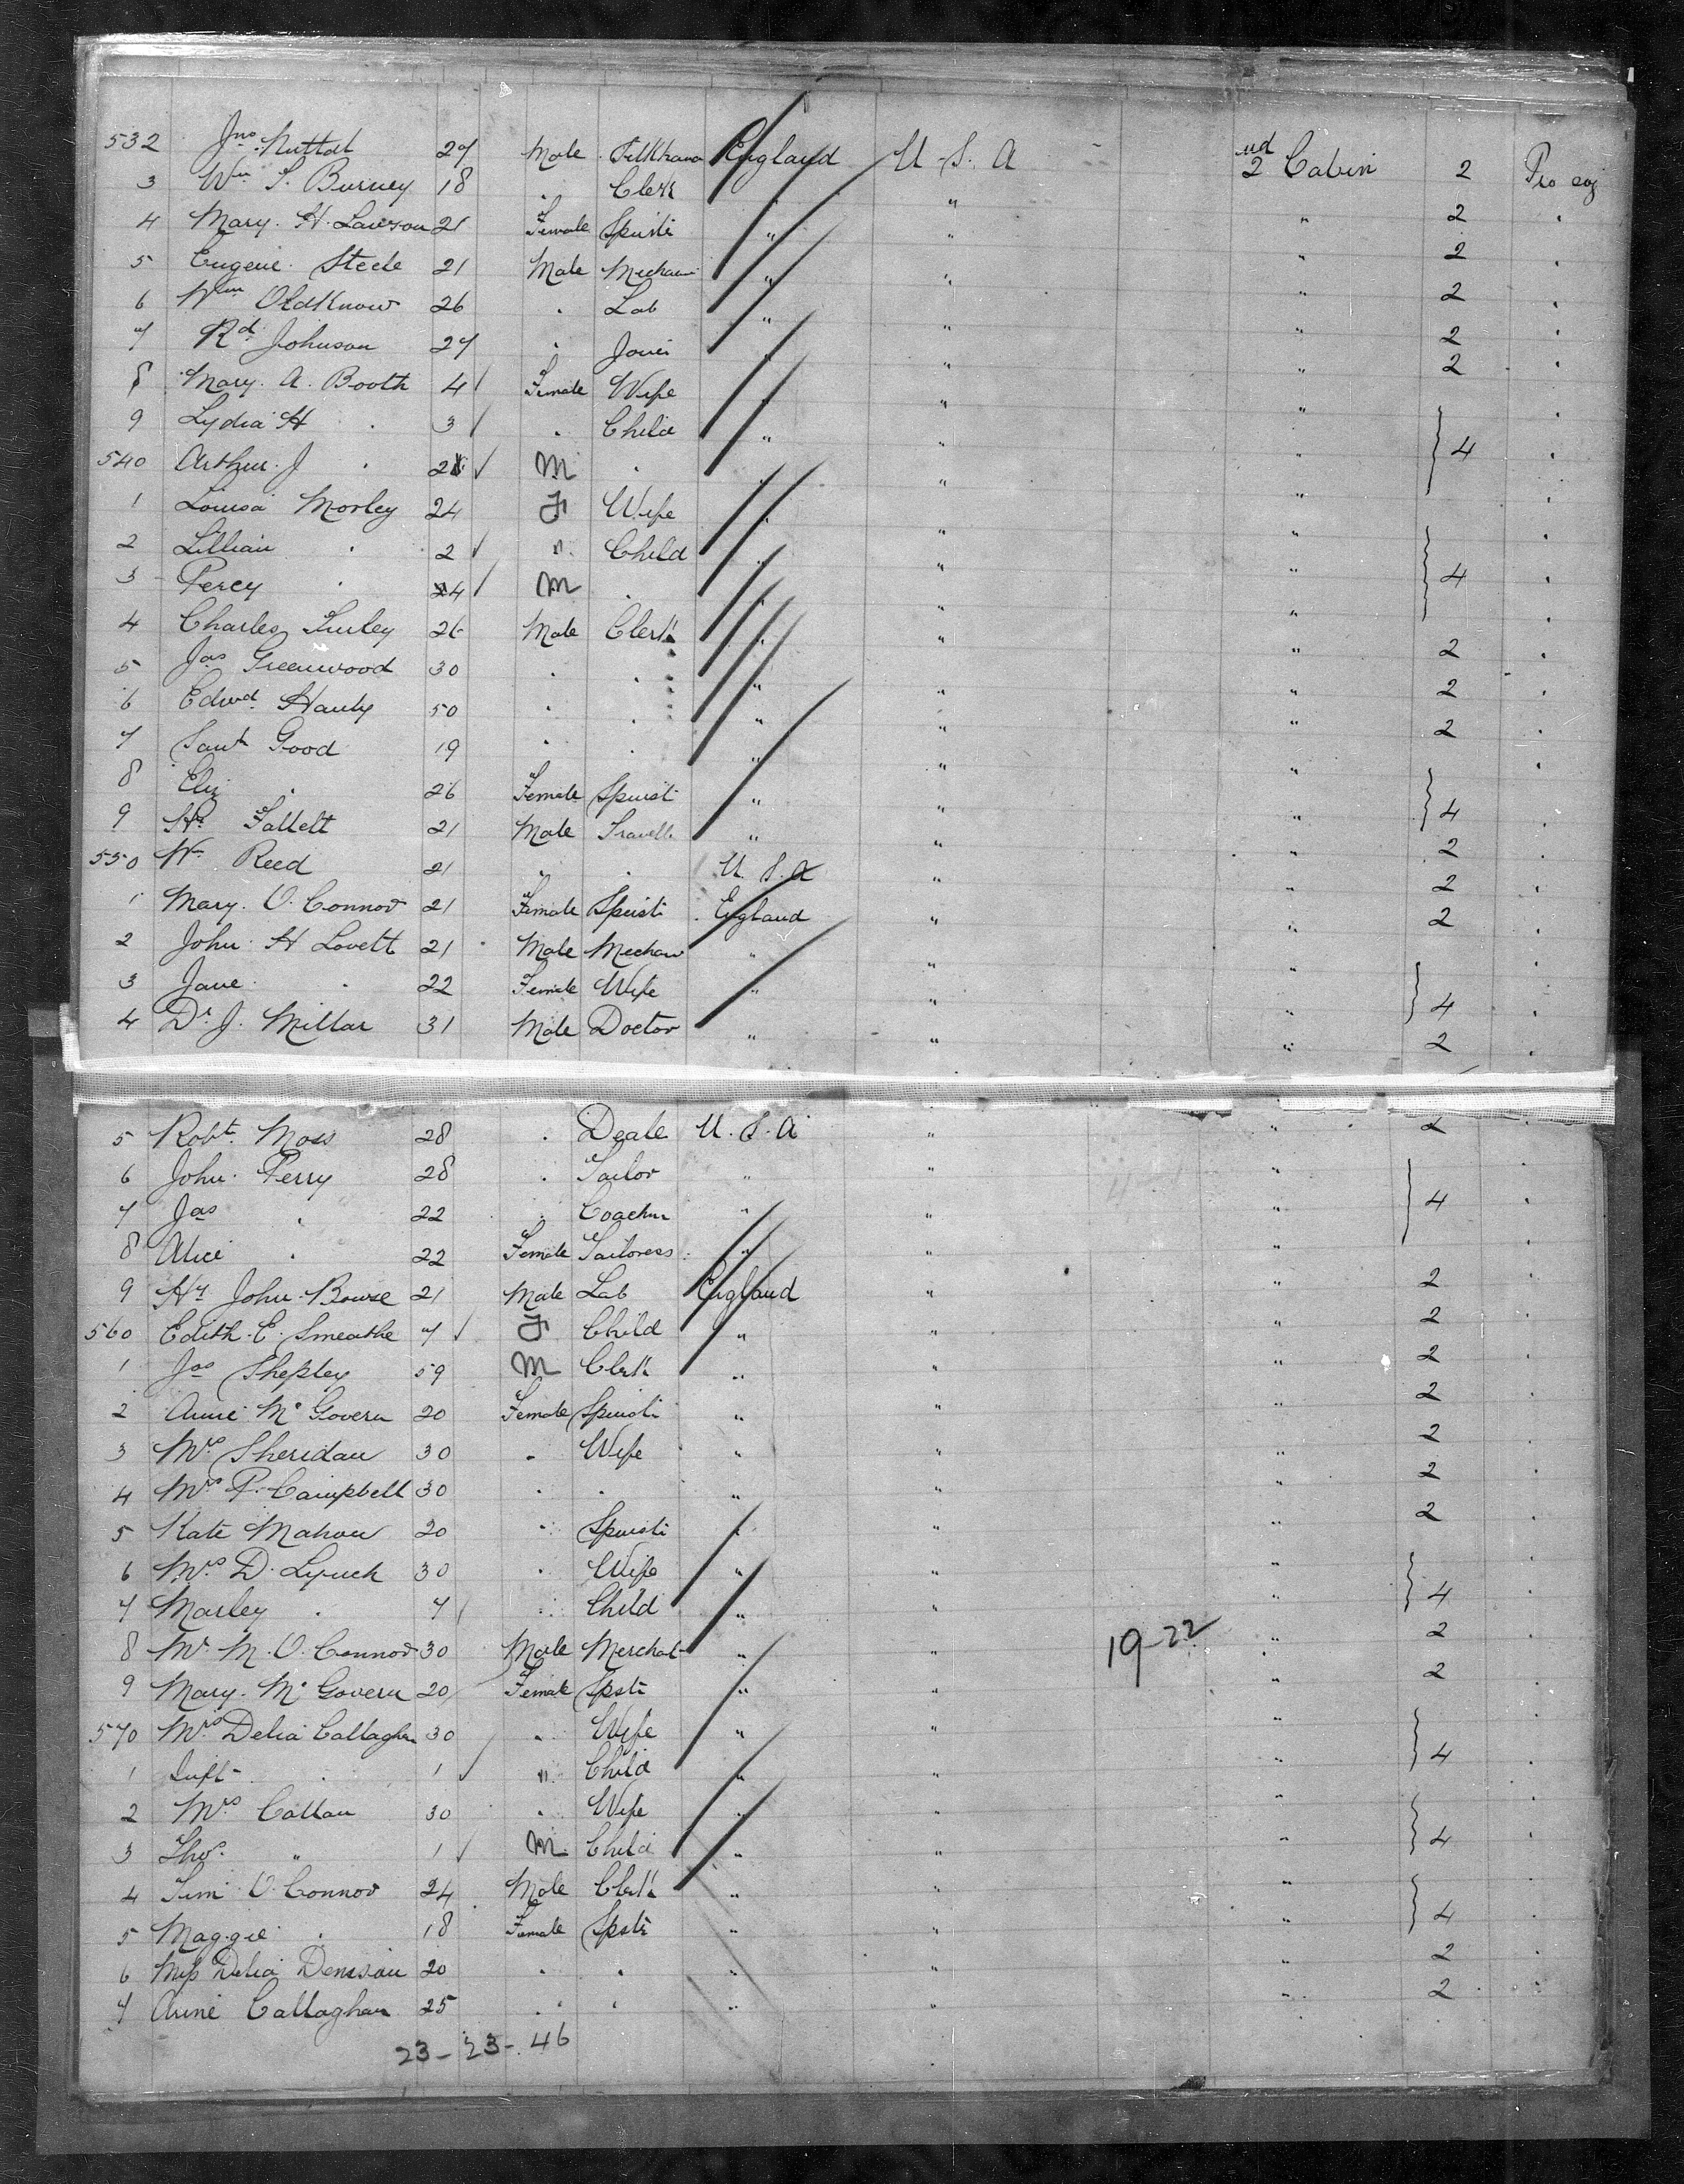 532 Jno Nuttal 27 Male England U.S.A 2nd Cabin 2 Pro soj
3 Wm S. Burney 18 " Clerk " " " 2 "
4 Mary. H. Lawson 21 Female Spinst " " " 2 "
5 Eugene Steele 21 Male Mechani " " " 2 "
6 Wm Oldknow 26 " Lab " " " 2 "
7 Rd Johnson 27 " Joiner " " " 2 "
8 Mary. A. Booth 4 Female Wife " " "
9 Lydia H " 3 " Child " " " 4 "
540 Arthur. J " 2 M " " " "
1 Louisa Morley 24 F Wife " " "
2 Lillian " 2 " Child " " " 4 "
3 Percy " 4 M " " " "
4 Charles Turley 26 Male Clerk " " " 2 "
5 Jas Greenwood 30 " " " " " 2 "
6 Edwd Hanly 50 " " " " " 2 "
7 Saml Good 19 " " " " "
8 Eliz " 26 Female Spinst " " " 4 "
9 Hy Fallett 21 Male Travell " " " 2 "
550 Wm Reed 21 " " U.S.A " " 2 "
1 Mary. O. Connor 21 Female Spinst England " " 2 "
2 John H Lovett 21 Male Mechani " " "
3 Jane " 22 Female Wife " " " 4 "
4 Dr J. Millar 31 Male Doctor " " " 2 "
5 Robt Moss 28 " Deale U.S.A " " 2 "
6 John Perry 28 " Tailor " " "
7 Jas " 22 " Coachm " " " 4 "
8 Alice " 22 Female Tailoress " " "
9 Hy John Bowse 21 Male Lab England " " 2 "
560 Edith. E. Smeathe 7 F Child " " " 2 "
1 Jas Shepley 59 M Clerk " " " 2 "
2 Anne Mc Govern 20 Female Spinst " " " 2 "
3 Mrs Sheridan 30 " Wife " " " 2 "
4 Mrs P. Campbell 30 " " " " " 2 "
5 Kate Mahon 20 " Spinst " " " 2 "
6 Mrs D. Lynch 30 " Wife " " "
7 Marley " 7 " Child " " " 4 "
8 Mr M. O. Connor 30 Male Merchat " " 19-22 " 2 "
9 Mary. Mc Govern 20 Female Spst " " " 2 "
570 Mrs Delia Callaghan 30 " Wife " " "
1 Inft " 1 " Child " " " 4 "
2 Mrs Callan 30 " Wife " " "
3 Tho. " 1 M Child " " " 4 "
4 Tim O Connor 24 Male Clerk " " "
5 Maggie " 18 Female Spst " " " 4 "
6 Miss Delia Denison 20 " " " " " 2 "
7 Anne Callaghan 25 " " " " " 2 "
23 - 23 - 46